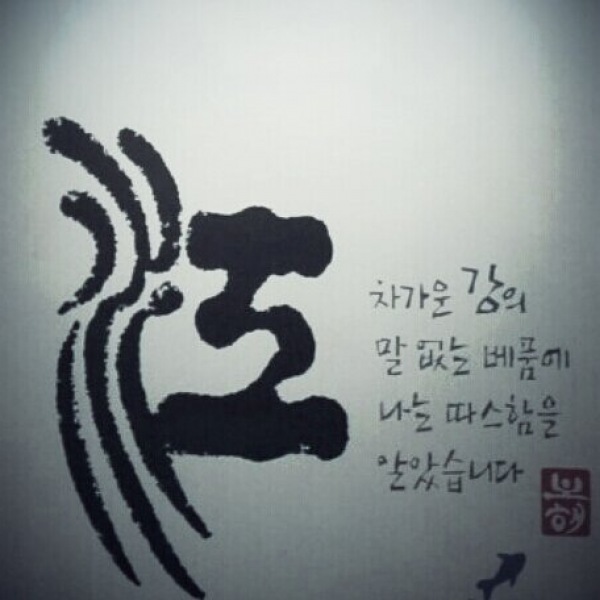 江
차가운 강의
말 없는 베품에
나는 따스함을
알았습니다